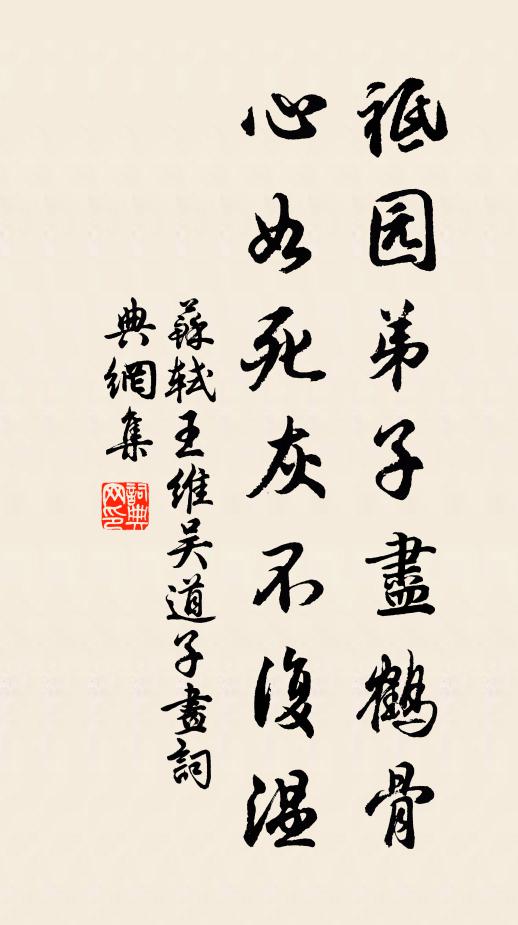 祗园弟子盡鶴骨
心如死灰不復温
蘇軾王維吴道子畫詞
典網集
詞典网印